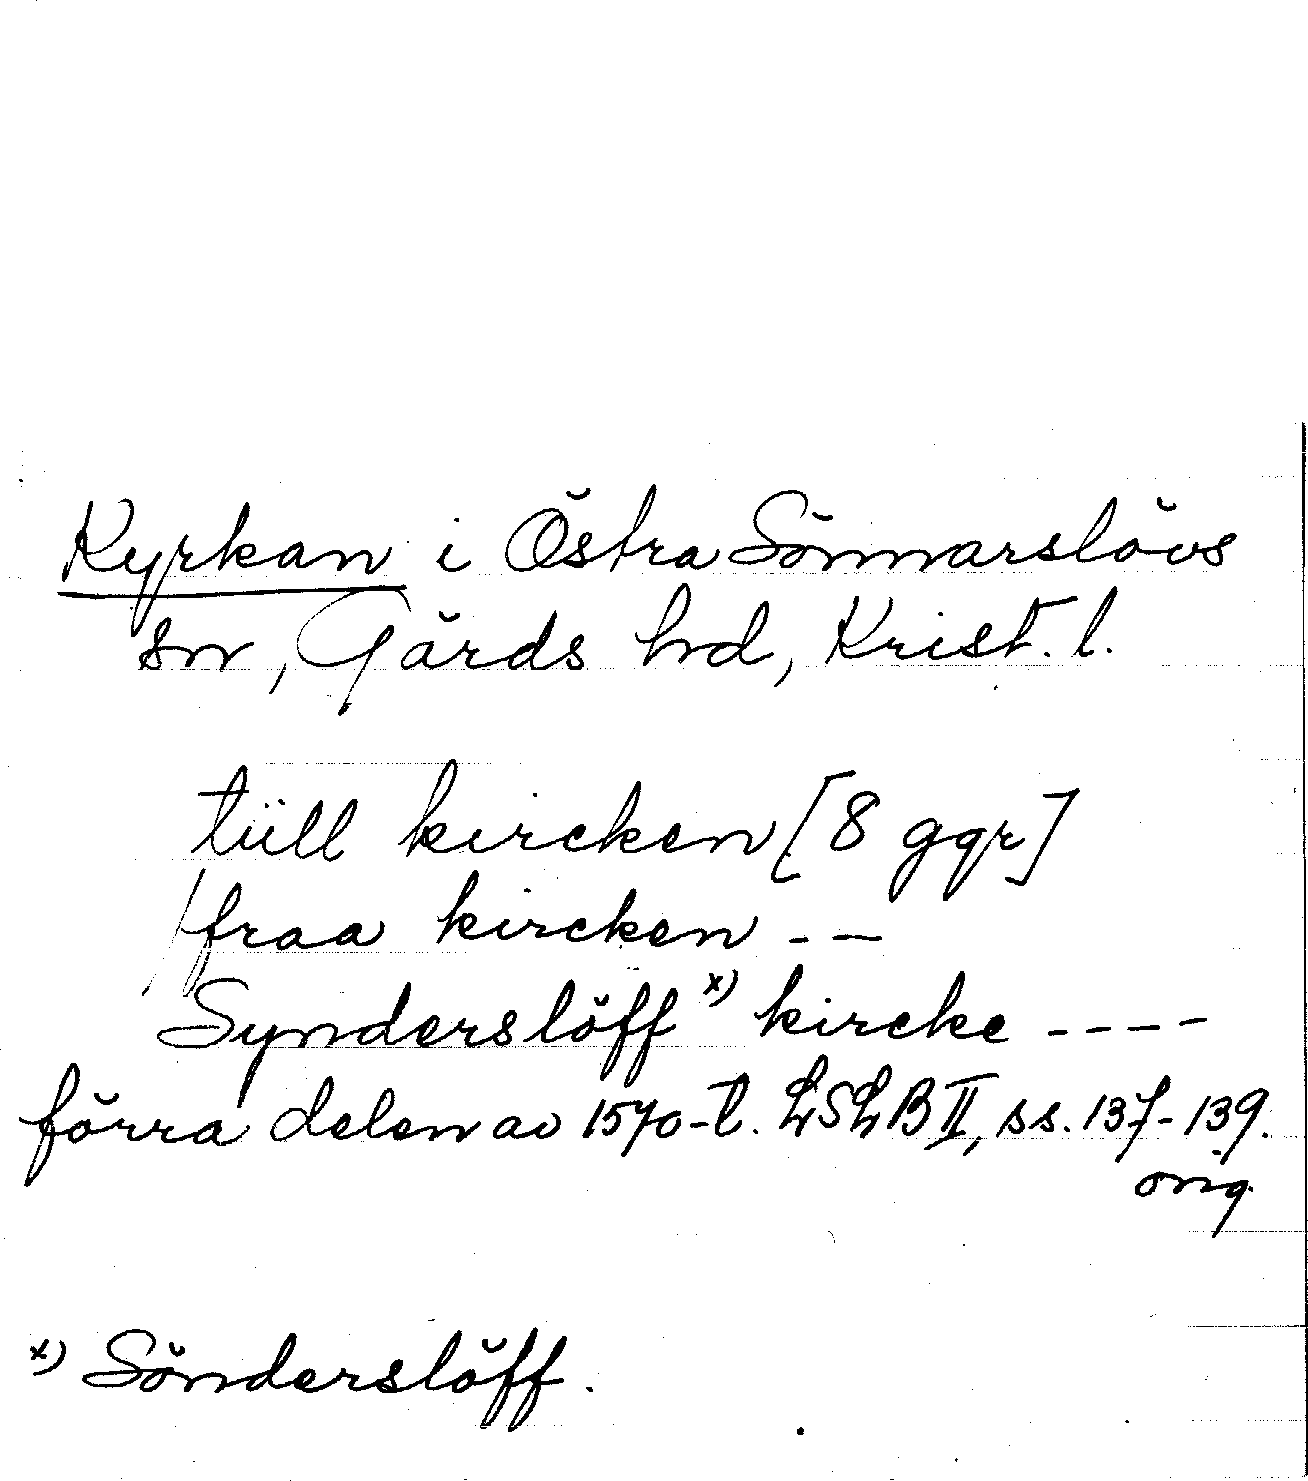 Kyrkan i Östra Sönnarslövs
sn, Gärds hd, Krist. l.
tüll kircken [8 ggr]
fraa kircken - -
Synderslöff x) kircke ----
förra delen av 1570-t. LSLB II, ss. 137-139.
orig.
x) Sönderslöff.